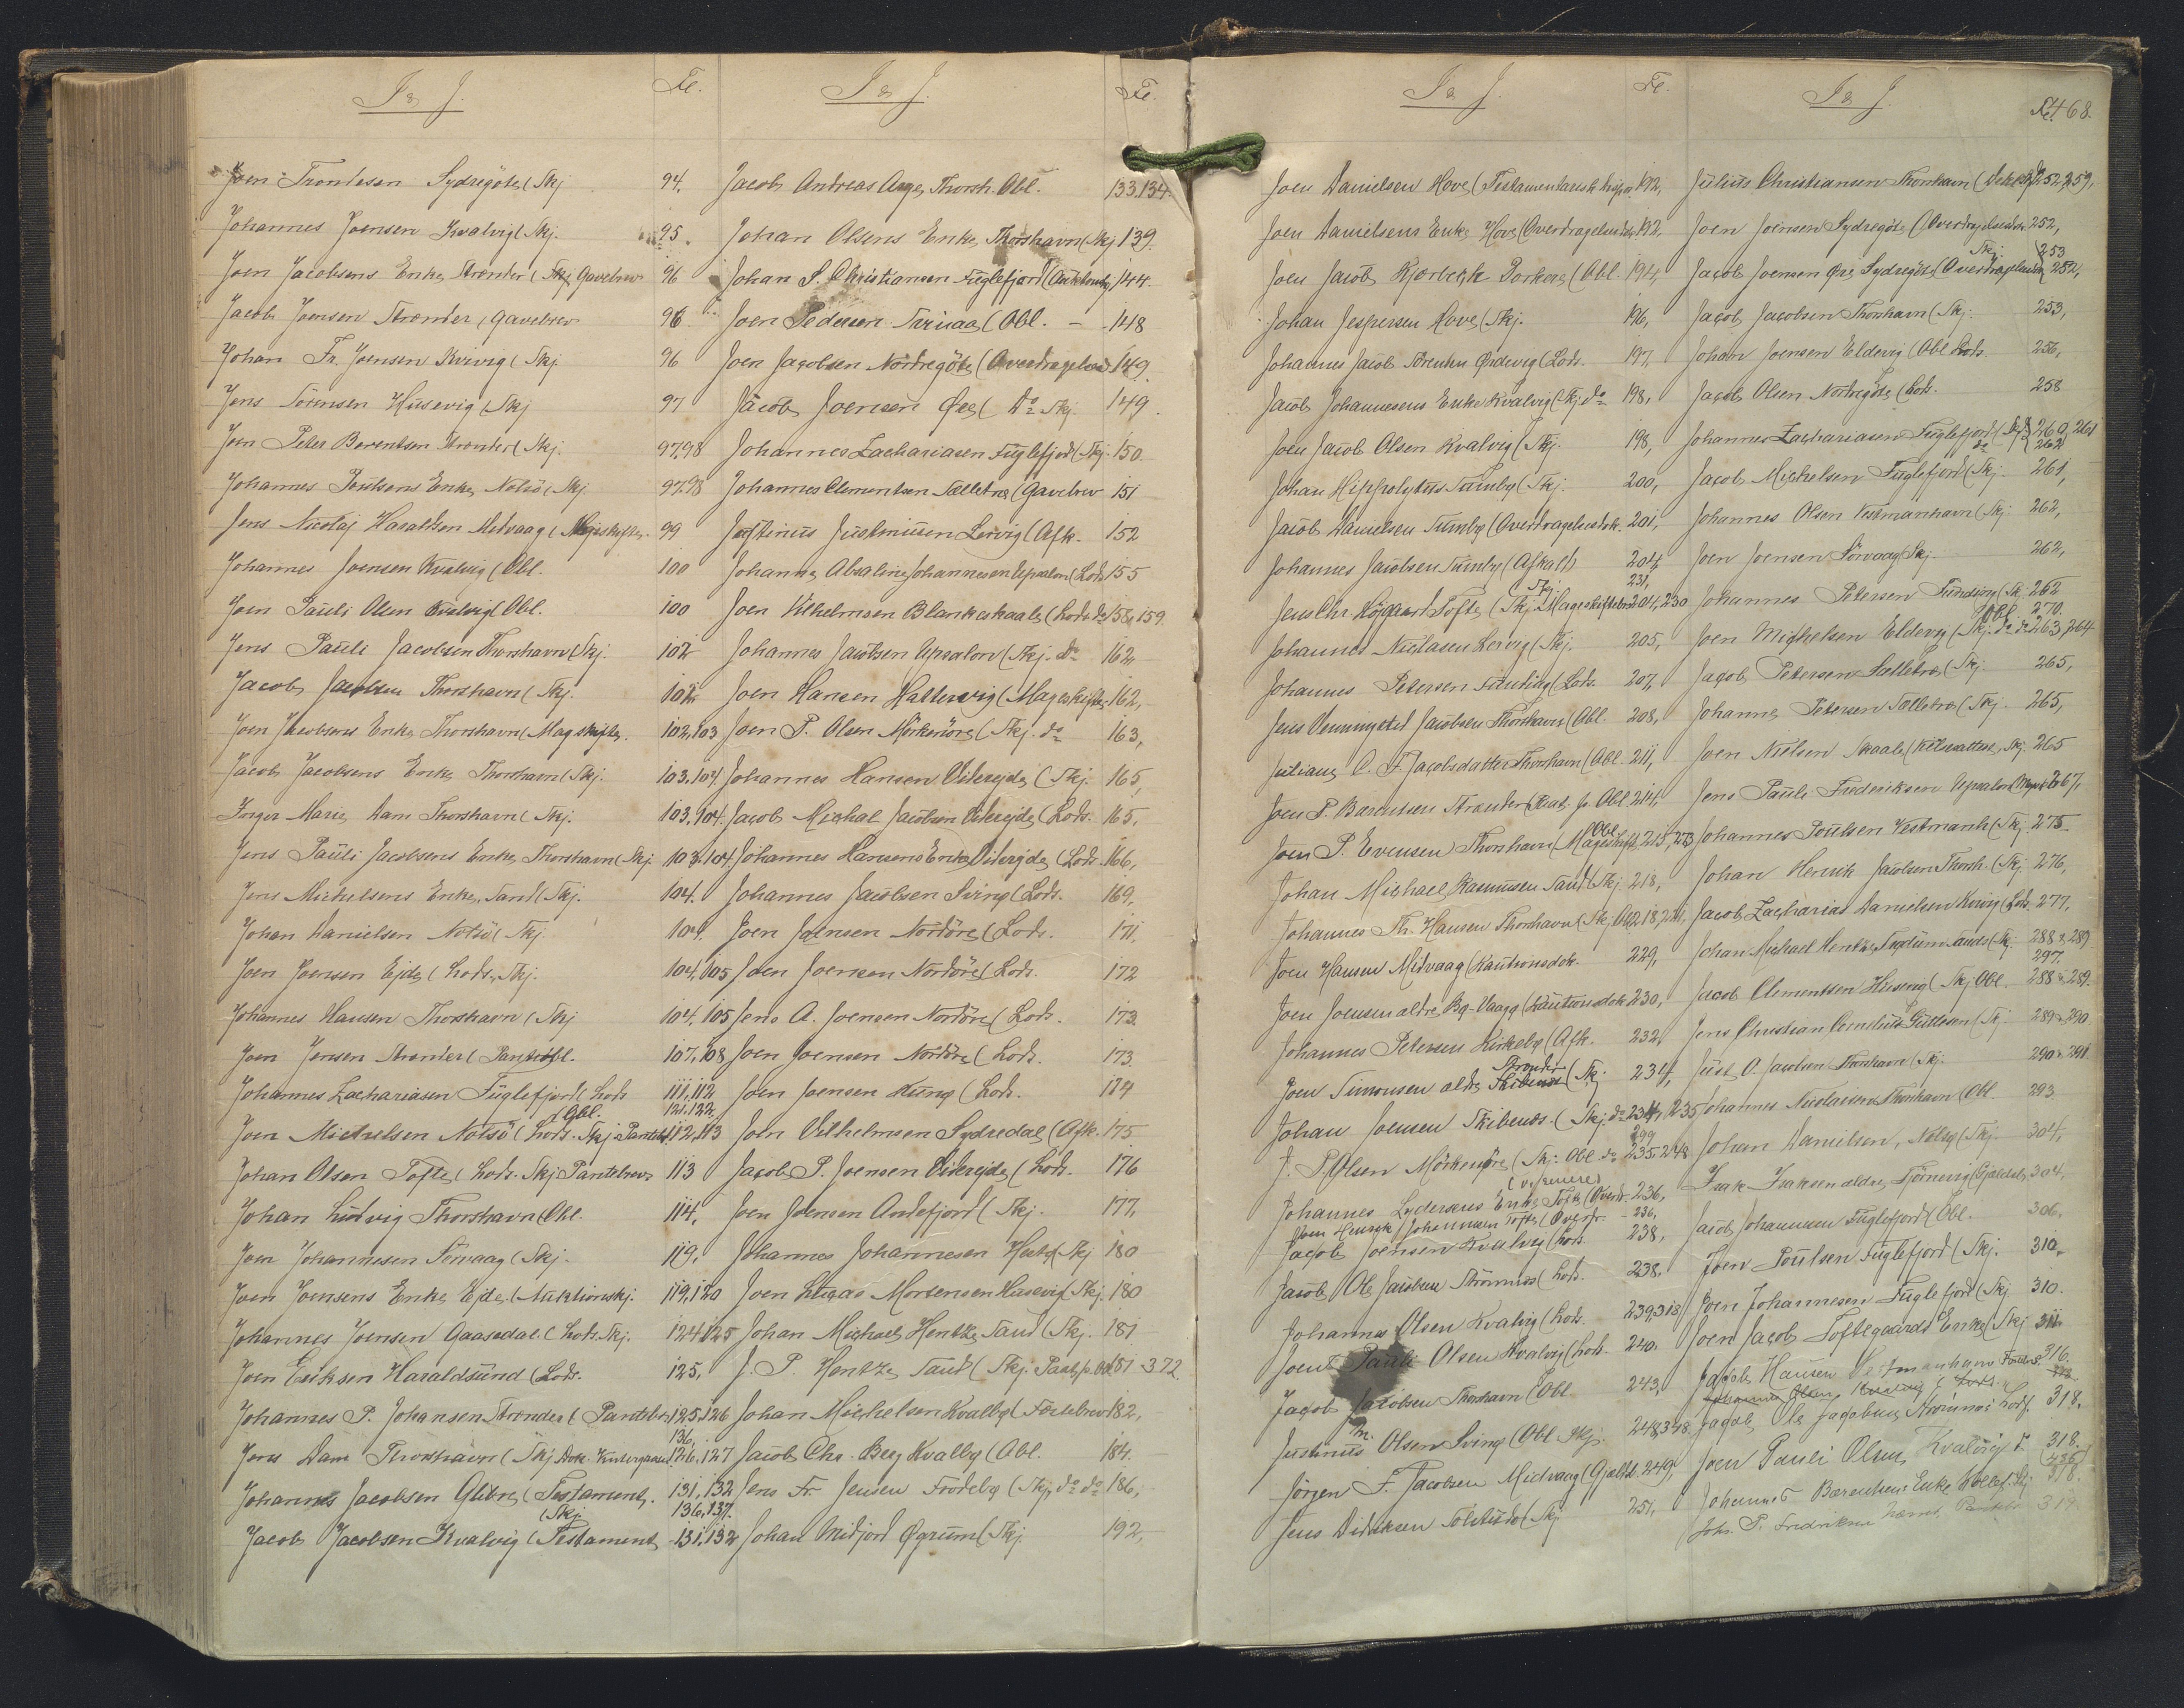 I & J.
Fe.
Joen Trondesen Sydregöte (Skj 94.
Johannes Joensen Kvalvig (Skj. 95.
Joen Jacobsens Enke, Strender (Skj, Gavebrev 96
Jacob Joensen Strender, Gavebrev 96
Johan Fr. Joensen Kvivig (Skj 96
Jens Sörensen Husevig (Skj 97
Joen Peter Berentsen Strender (Skj. 97,98
Johannes Poulsens Enke, Nolsö (Skj 97.98
Jens Nicolaj Haraldsen Midvaag (Mageskifte. 99
Johannes Joensen Kvalvig (Obl. 100
Joen Pauli Olsen Kvalvig (Obl. 100
Jens Pauli Jacobsen Thorshavn (Skj. 102
Jacob Jacobsen Thorshavn (Skj. 102
Joen Jacobsens Enke, Thorshavn (Magskifte. 102,103
Jacob Jacobsens Enke Thorshavn (Skj. 103.104
Inger Marie Dam Thorshavn (Skj. 103.104.
Jens Pauli Jacobsens Enke, Thorshavn (Skj. 103.104.
Jens Michelsens Enke, Sand (Skj. 104.
Johan Danielsen Nolsö (Skj. 104.
Joen Joensen Ejde (Lods. Skj. 104,105
Johannes Hansen Thorshavn (Skj 104.105
Joen Jensen Strender (Panteobl. 107,108
Johannes Zachariasen Fuglefjord (Lods 111,112
Obl. 121.122.
Joen Michelsen Nolsö (Lods. Skj. Pantebr. 112,113
Johan Olsen Tofte (Lods. Skj Pantebrev 113
Johan Ludvig Thorshavn (Obl. 114,
Joen Johannesen Sörvaag (Skj. 119,
Joen Joensens Enke Ejde (Auktionskj. 119,120
Johannes Joensen Gaasedal (Lods. Skj. 124.125
Joen Eriksen Haraldsund (Lods. 125,
Johannes P. Johansen Strender (Pantebr. 125,126
136,
Jens Dam Thorshavn (Skj 126,127
Johannes Jacobsen Glibre (Testament. 131,132
(Skj 136,137.
Jacob Jacobsen Kvalvig (Testament 131,132
I & J.
Fe.
Jacob Andreas Aage, Thorsh. Obl. 133.134.
Johan Olsens Enke, Thorshavn (Skj 139.
Johan P. Christiansen Fuglefjord 144.
Joen Pedersen Svinaa (Obl. 148
Joen Jacobsen Nordregöte (Overdragelsesd. 149
Jacob Joensen Øre (Do Skj. 149.
Johannes Zachariasen Fuglefjord (Skj. 150
Johannes Clementsen Selletræ (Gavebrev 151
Justinus Justinusen Lervig (Afk. 152
Johanne Absaline Johannesen Upsalon (Lods 155
Joen Vilhelmsen Blankeskaale (Lods do 158,159.
Johannes Jacobsen Upsalon (Skj. do 162
Joen Hansen Hattervig (Mageskifte. 162,
Joen P. Olsen Mörkenöre (Skj. do 163,
Johannes Hansen Viderejde (Skj. 165,
Jacob Michal Jacobsen Viderejde (Lods. 165.
Johannes Hansens Enke Viderejde (Lods. 166,
Johannes Jacobsen Sving (Lods. 169,
Joen Joensen Nordöre (Lods. 171,
Joen Joensen Nordöre (Lods. 172
Jens A. Joensen Nordöre (Lods. 173.
Joen Joensen Nordöre (Lods. 173.
Joen Joensen Kunø (Lods. 174
Joen Vilhelmsen Sydredal (Afk. 175
Jacob P. Joensen Viderejde (Lods. 176
Joen Joensen Andefjord (Skj. 177,
Johannes Johannesen Hestø (Skj 180
Joen Lucas Mortensen Husevig (Skj. 180
Johan Michael Hentze, Sand (Skj. 181
J. P. Hentze Sand (Skj. 181-372.
Johan Michelsen Kvalbø (Fæstebrev 182,
Jacob Chr. Berg Kvalbø (Obl. 184.
Jens Fr. Jensen Frodebø (Skj. do do 186,
Johan Midjord Øgrum (Skj. 192,
I & J.
Fe.
Joen Danielsen Hove (Testamentarisk 192,
Joen Danielsens Enke, Hove (Overdragelsesdok. 192,
Joen Jacob Kjærbek Porkere (Obl. 194,
Johan Jespersen Hove (Skj. 196,
Johannes Jacob Ørdevig (Lods. 197,
Jacob Johannesens Enke Kvalvig (Skj. do 198,
Joen Jacob Olsen Kvalvig (Skj. 198,
Johan Hippolytus Sumbø (Skj. 200,
Jacob Danielsen Sumbø (Overdragelsesdok. 201,
Johannes Jacobsen Sumbø (Afkald) 204,
Skj 231,
Jens Chr. Höjgaard Tofte (Skj. Mageskiftebr. 204,230
Johannes Niclasen Lervig (Skj. 205,
Johannes Petersen Funding (Lods. 207,
Jens Venningsted Jacobsen Thorshavn (Obl. 208,
Juliane C. F. Jacobsdatter Thorshavn (Obl. 211,
Joen P. Berentsen Strender (Paat. p. Obl. 214,
Obl.
Joen P. Evensen Thorshavn (Mageskifte, 215,273
Johan Michael Rasmussen Sand (Skj. 218,
Johannes Th. Hansen Thorshavn (Skj. Obl. 218,221,
Joen Hansen Midvaag (Kautionsdok. 229,
Joen Joensen ældre, Bø-Vaag (Kautionsdok 230,
Johannes Petersen Kirkebø (Afk. 232,
Strender
Joen Simonsen ældre (Skj. 234,
Johan Joensen Skibenes (Skj. do 234, 235
299
J. P. Olsen Mörkenöre (Skj. Obl. do 235.248
Johannes Lydersens Enke, Tofte (Overdr. 236,
Joen Henrik Johannesen Tofte (Overdr. 236,
Jacob Joensen Kvalvig (Lods. 238,
Jacob Ole Jacobsen Strömnes (Lods. 238.
Johannes Olsen Kvalvig (Lods. 239,318
Joen Pauli Olsen Kvalvig (Lods. 240.
Jacob Jacobsen Thorshavn (Obl 243,
Justinus Olsen Sving (Obl. Skj. 248,348
Jörgen F. Jacobsen Midvaag (Gjældsb. 249,
Jens Didriksen Solitudo (Skj 251,
I & J.
Fe. 468.
Julius Christiansen Thorshavn 252,259,
Joen Joensen Sydregöte (Overdragelsesdok. 252,
Skj 253
Jacob Joensen Øre, Sydregöte (Overdragelsesdok 252,
Jacob Jacobsen Thorshavn (Skj. 253,
Johan Joensen Eldevig (Obl. Lods. 256,
Jacob Olsen Nordregöte (Lods. 258
Johannes Zachariasen Fuglefjord 260,261
do 262
Jacob Michelsen Fuglefjord (Skj. 261,
Johannes Olsen Vestmanhavn (Skj. 262,
Joen Joensen Sörvaag (Skj. 262,
Johannes Petersen Funding (Skj. 262
Obl. 270.
Joen Michelsen Eldevig (Skj. do do 263,264
Jacob Petersen Selletræ (Skj. 265,
Johanne Petersen Selletræ (Skj. 265,
Joen Nielsen Skaale, Skj. 265
Jens Pauli Frederiksen Upsalon 267,
Johannes Poulsen Vestmanh (Skj. 275.
Johan Henrik Jacobsen Thorsh. (Skj. 276,
Jacob Zacharias Danielsen Kvivig (Lods. 277,
Johan Michael Hentze, Sand (Skj. 288 & 289
297.
Jacob Clementsen Husevig (Skj. Obl. 288 & 289.
Jens Christian Cornelius Guttesen (Skj 289 & 290
Just O. Jacobsen Thorshavn (Skj. 290 & 291.
Johannes Nicolaisen Thorshavn (Obl. 293.
Johan Danielsen, Nolsø (Skj. 304,
Isak Isaksen ældre, Tjörnevig (Gjældsb. 304,
Jacob Johannesen Fuglefjord (Obl. 306.
Joen Poulsen Fuglefjord (Skj. 310.
Joen Johannesen Fuglefjord (Skj 310.
Joen Jacob Toftegaards Enke (Skj 311.
Jacob Hansen Vestmanhavn 316.
Johannes Olsen Kvalvig (Lods.
Jacob Ole Jacobsen Strömnes Lods. 318.
Joen Pauli Olsen, Kvalvig 318.
Johannes Barentsens Enke 318.
Joh. P. Fredriksen 319.